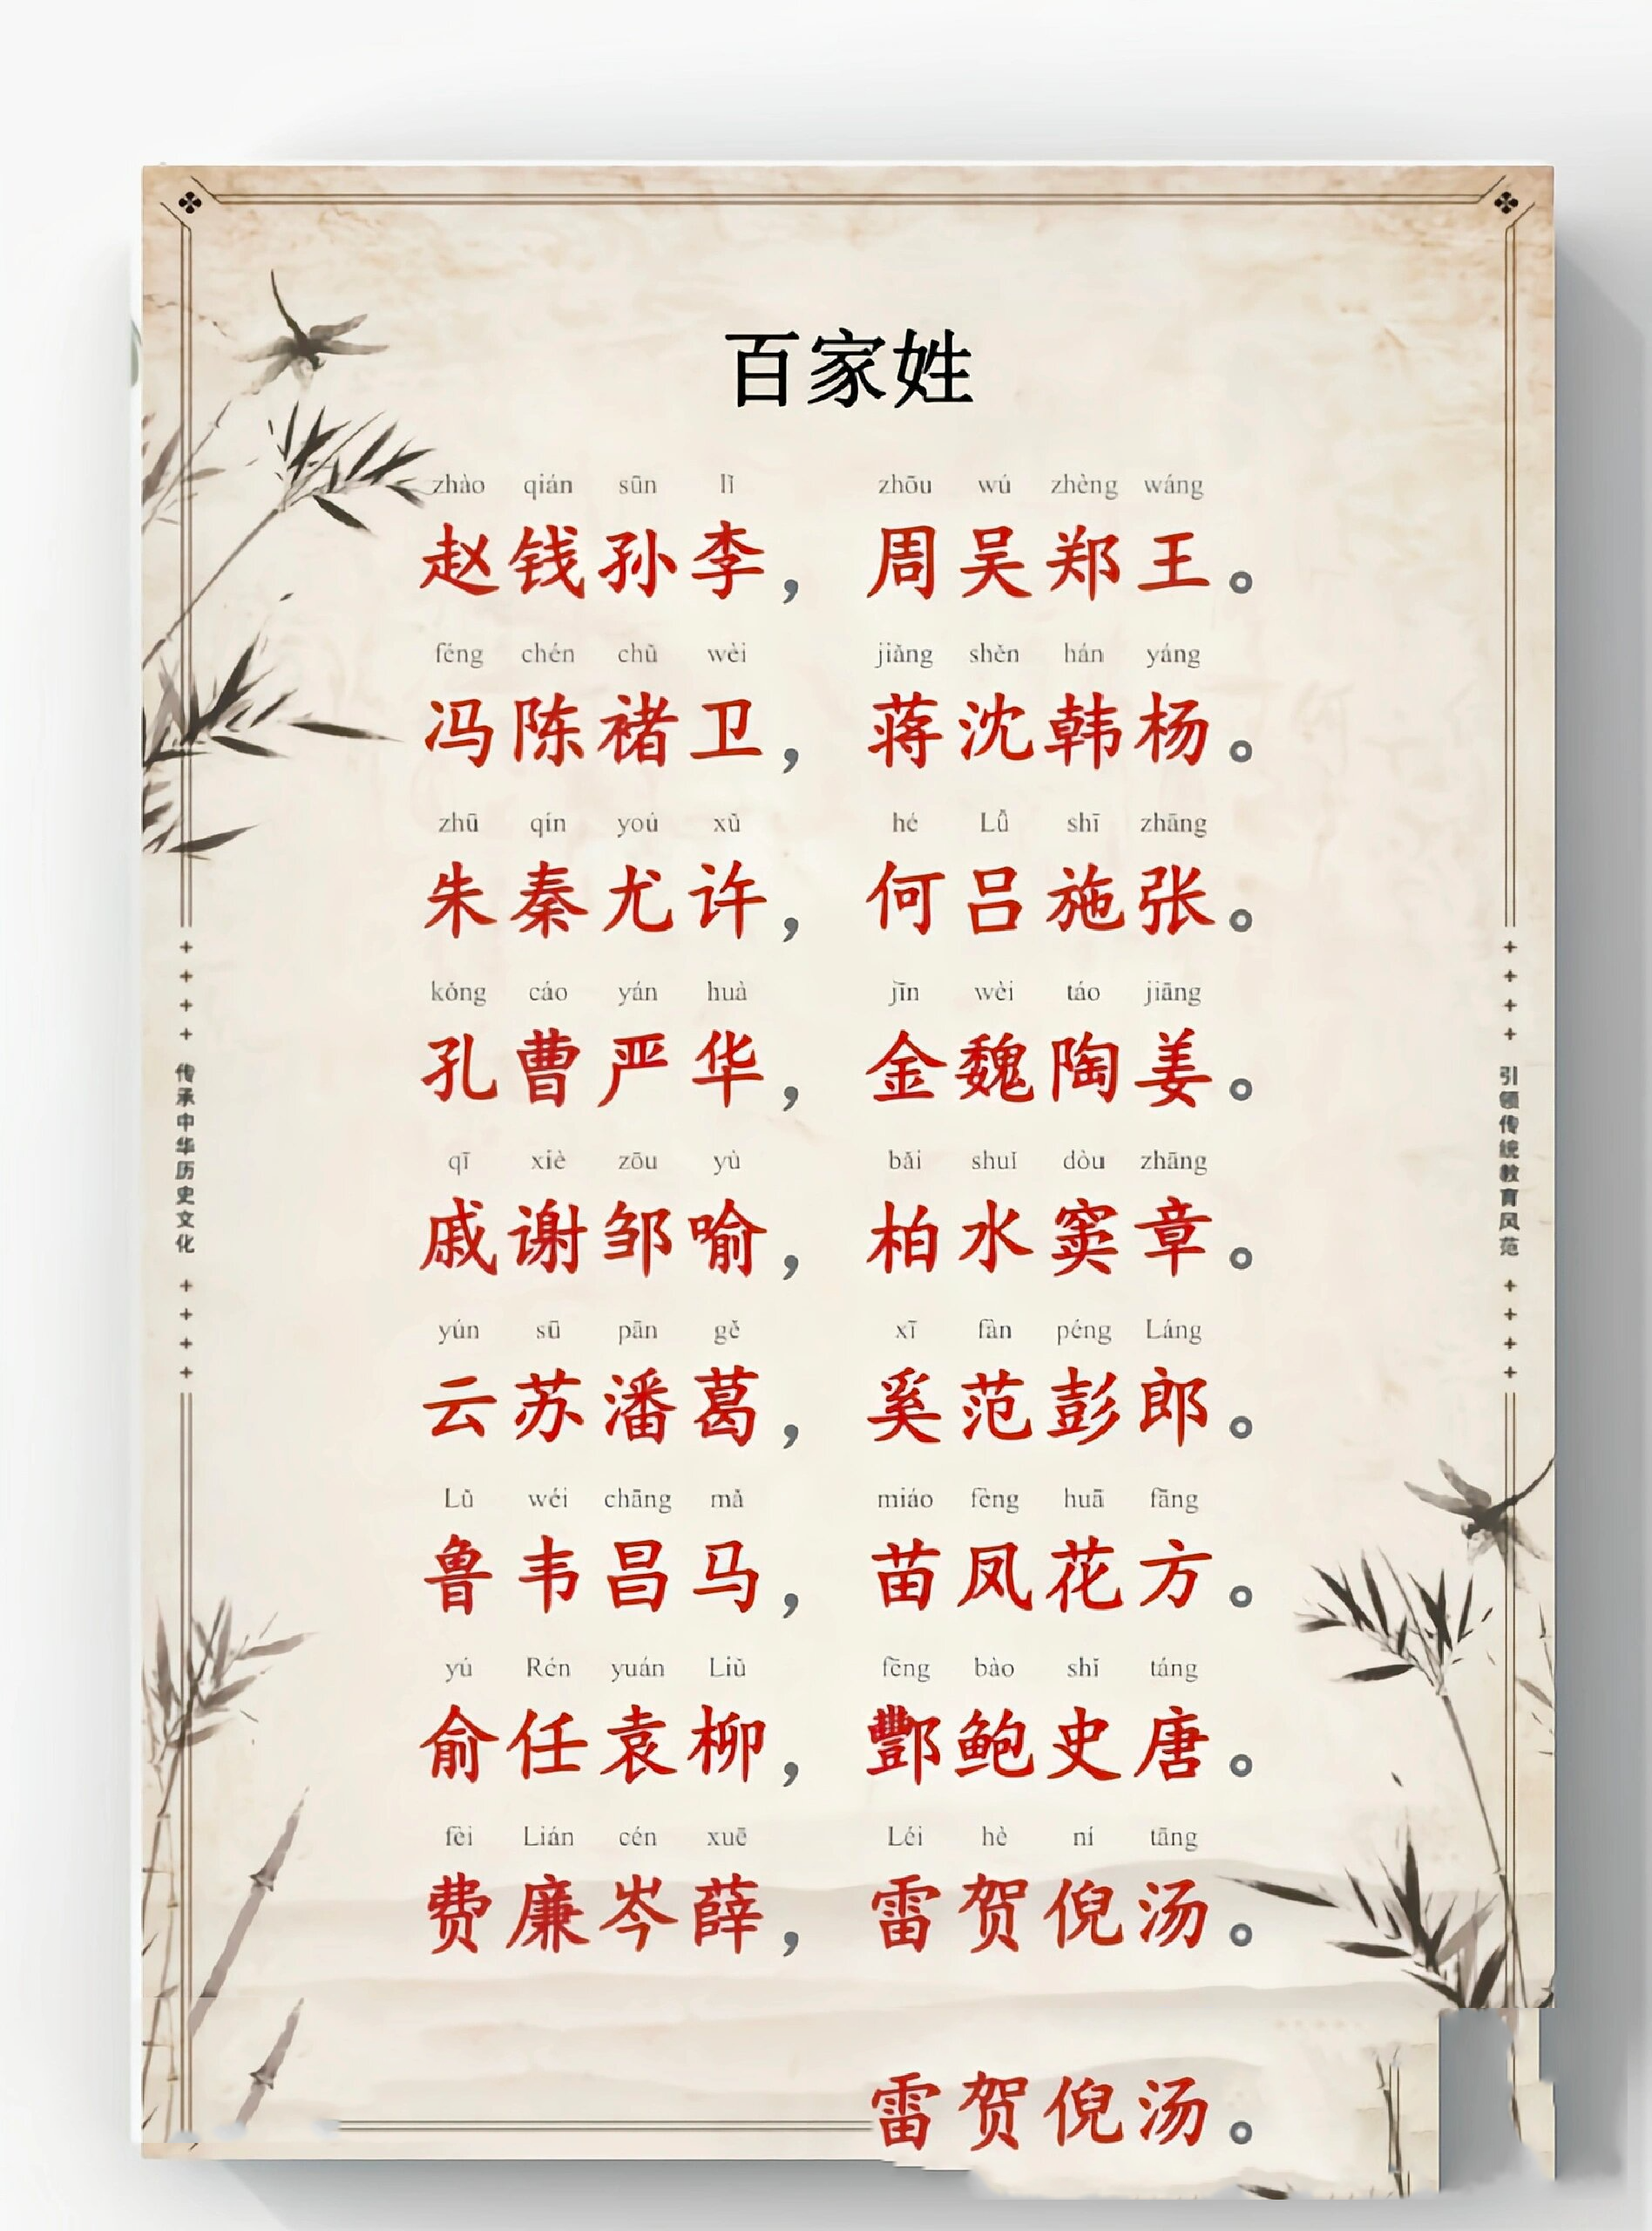 百家姓
zhào qián sūn lǐ zhōu wú zhèng wáng
赵钱孙李，周吴郑王。
féng chén chǔ wèi jiǎng shěn hán yáng
冯陈褚卫，蒋沈韩杨。
zhū qín yoú xǔ hé Lǚ shī zhāng
朱秦尤许，何吕施张。
kǒng cáo yán huà jīn wèi táo jiāng
孔曹严华，金魏陶姜。
qī xiè zōu yù bǎi shuǐ dòu zhāng
戚谢邹喻，柏水窦章。
yún sū pān gě xī fàn péng Láng
云苏潘葛，奚范彭郎。
Lǔ wéi chāng mǎ miáo fèng huā fāng
鲁韦昌马，苗凤花方。
yú Rén yuán Liǔ fēng bào shǐ táng
俞任袁柳，酆鲍史唐。
fèi Lián cén xuē Léi hè ní tāng
费廉岑薛，雷贺倪汤。
雷贺倪汤。
传承中华历史文化
引领传统教育风范